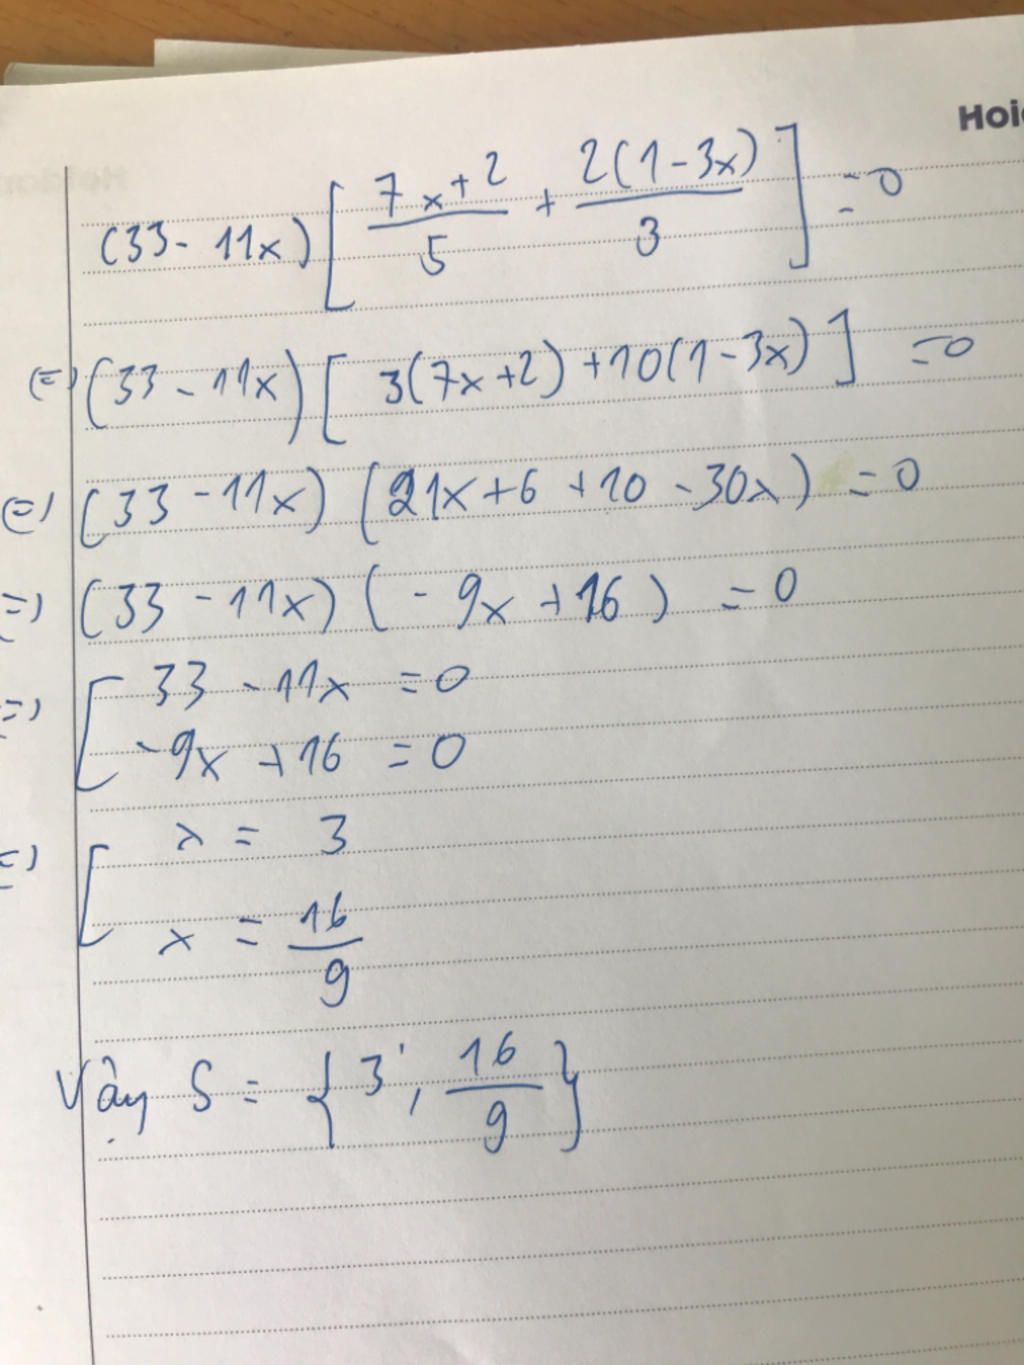 Hoi
(33 - 11x) [ (7x + 2)/5 + 2(1 - 3x)/3 ] = 0
(=) (33 - 11x) [ 3(7x + 2) + 10(1 - 3x) ] = 0
(=) (33 - 11x) (21x + 6 + 10 - 30x) = 0
=) (33 - 11x) ( - 9x + 16 ) = 0
=) [ 33 - 11x = 0
- 9x + 16 = 0
=) [ x = 3
x = 16/9
Vậy S = { 3 ; 16/9 }